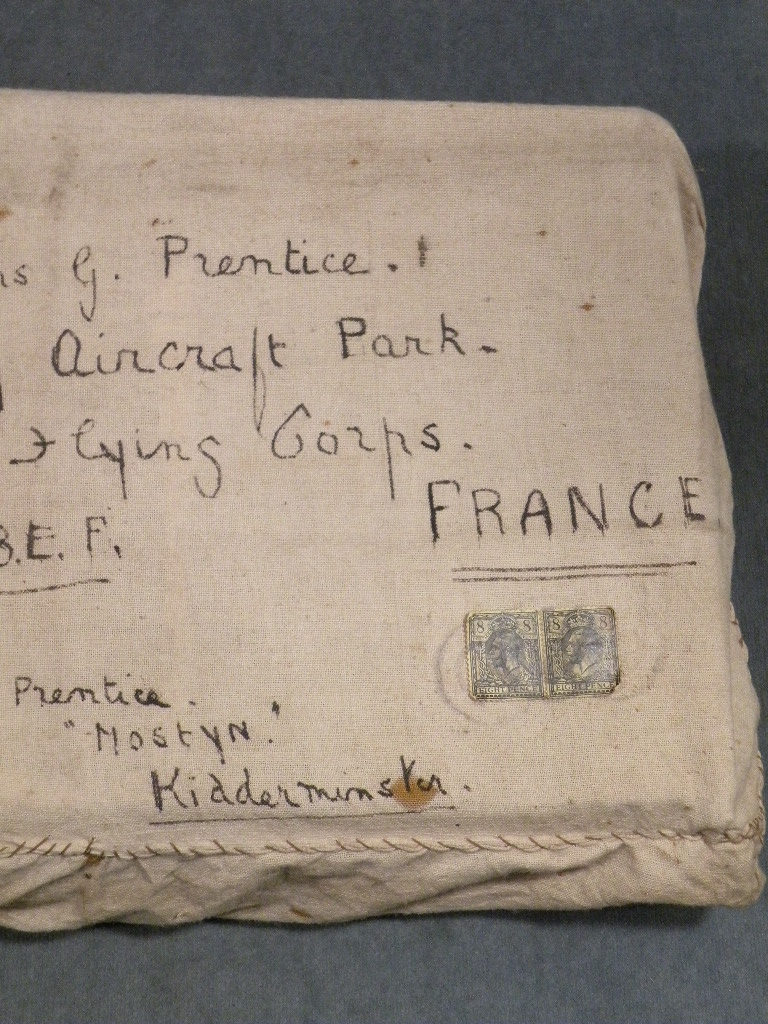 G. Prentice.
Aircraft Park.
Flying Corps.
B.E.F.
FRANCE
8 8 8 8
EIGHT PENCE EIGHT PENCE
Prentice.
"Mostyn."
Kidderminster.